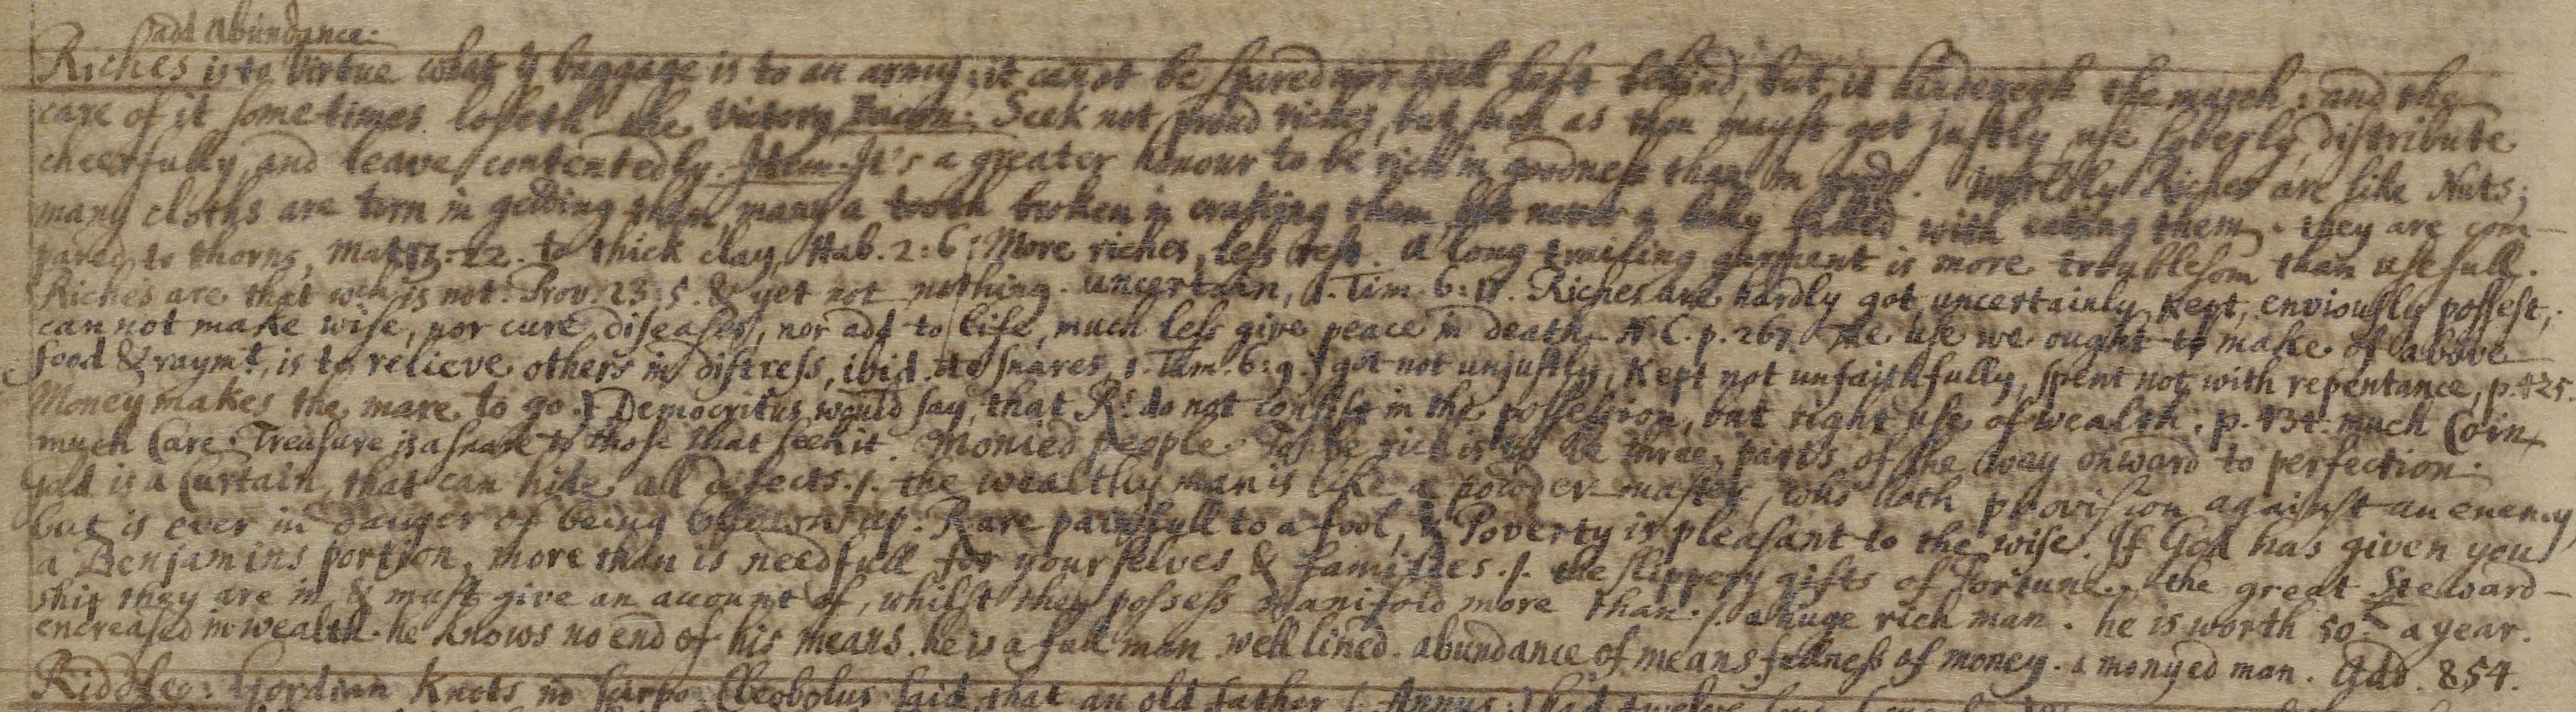 add Abundance.
Riches is to Virtue what ye baggage is to an army; it canot be spared nor well left behind, but it hindereth the march; and the
care of it sometimes looseth the victory Bacon. Seek not proud riches, but such as thou mayst get justly, use soberly, distribute
cheerfully, and leave contentedly. Idem. It's a greater honour to be rich in goodness than in goods. Worldly Riches are like Nuts;
many cloths are torn in getting them, many a tooth broken in craking them, but never a belly filled with eating them. they are com-
pared to thorns, Mat. 13:22. to thick clay, Hab. 2:6: More riches, less rest. A long trailing garment is more troublesom than usefull.
Riches are that wch is not. Prov. 23:5. & yet not nothing. uncertain, 1. Tim. 6:17. Riches are hardly got, uncertainly kept, enviously possest,
can not make wise, nor cure diseases, nor add to life, much less give peace in death. N.C. p. 267. The use we ought to make of above
food & raymt. is to relieve others in distress, ibid. to snares, 1. Tim. 6:9. got not unjustly, kept not unfaithfully, spent not with repentance, p. 425.
Money makes the mare to go. Democritus would say, that Rs. do not consist in the possession, but right use of wealth. p. 431. much Coin,
much Care. Treasure is a snare to those that seek it. Monied people. To be rich is to be three parts of the way onward to perfection.
Gold is a Curtain, that can hide all defects./. the wealthy man is like a powder-master, who hath provision against an enemy,
but is ever in danger of being blown up. R are painfull to a fool, & Poverty is pleasant to the wise. If God has given you
a Benjamins portion, more than is needfull for yourselves & families./. the slippery gifts of Fortune. the great Steward-
ship they are in & must give an account of, whilst they possess manifold more than./. a huge rich man. he is worth 50 a year.
encreased in wealth. he knows no end of his means. he is a full man. well lined. abundance of means. fullness of money. a monyed man. Add. 854.
Riddles. Gordian Knots Cleobolus said, that an old father had twelve